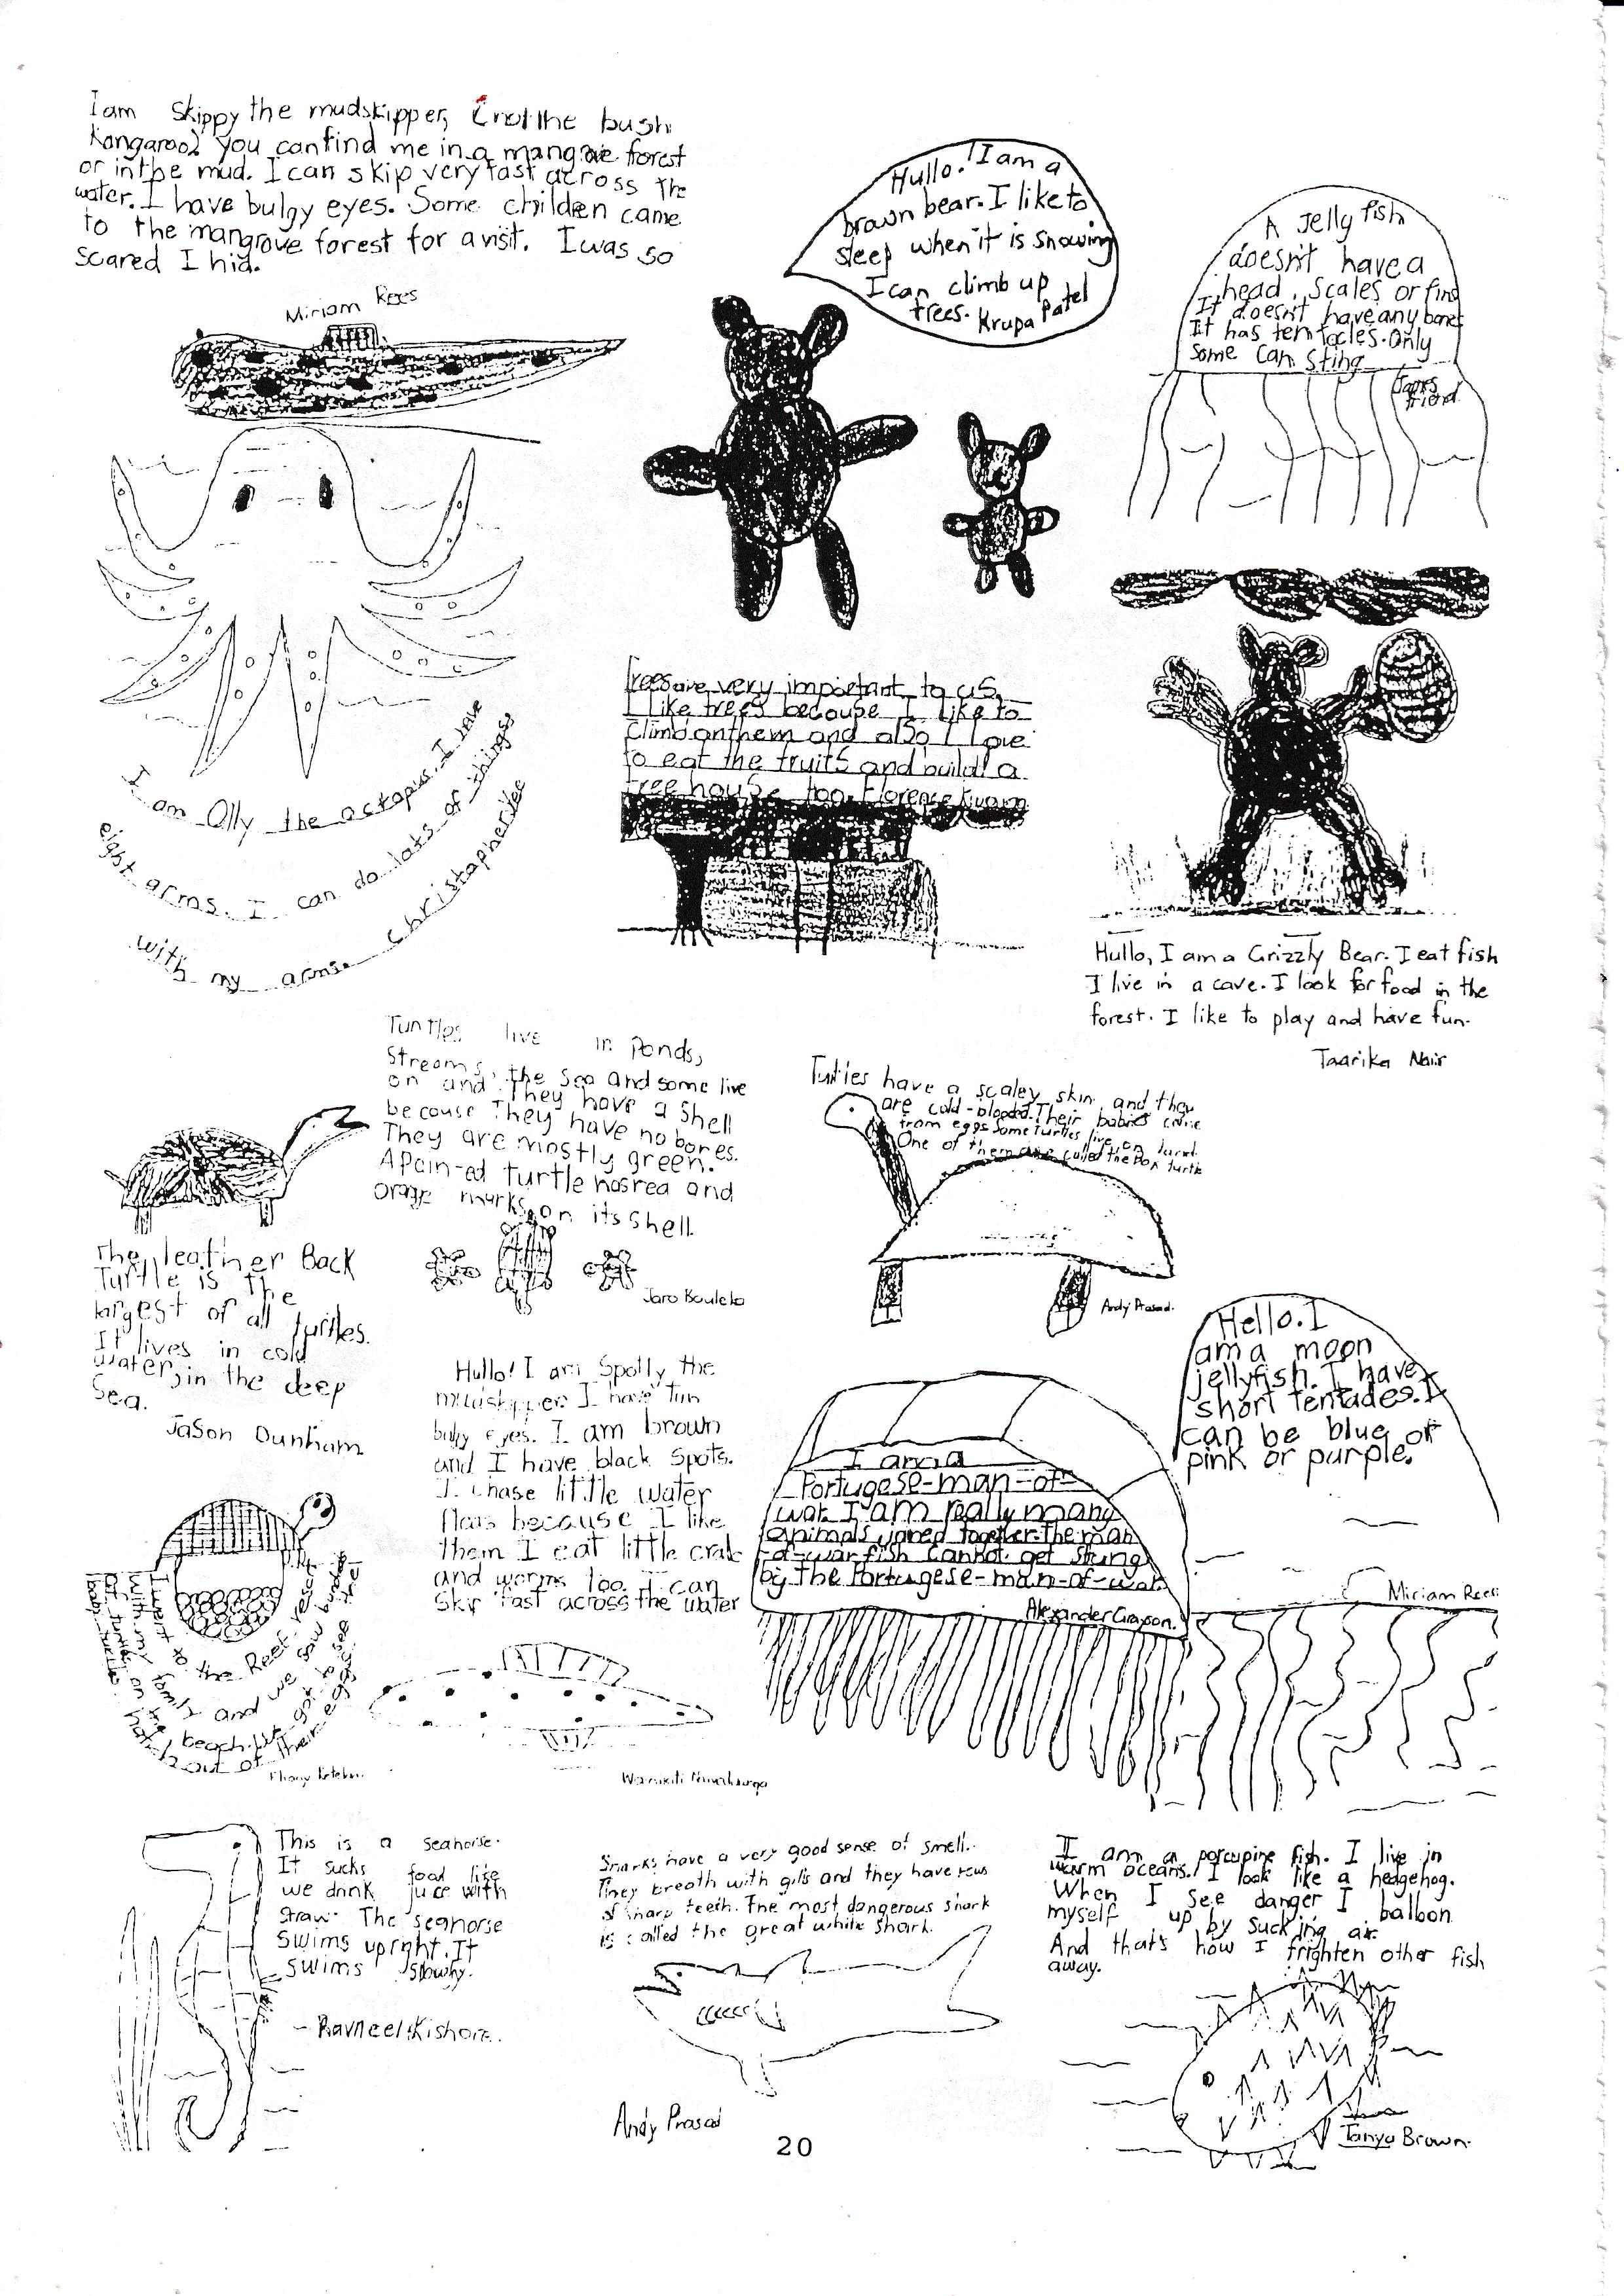 I am Skippy the mudskipper, (not the bush
Kangaroo) you can find me in a mangrove forest
or in the mud. I can skip very fast across the
water. I have bulgy eyes. Some children came
to the mangrove forest for a visit. I was so
scared I hid.
Miriam Rees
Hullo! I am a
brown bear. I like to
sleep when it is snowing
I can climb up
trees. Krupa Patel
A Jelly fish
doesn't have a
head, scales or fins
It doesn't have any bones
It has tentacles. Only
some can sting
friend.
I am Olly the octopus. I have
eight arms. I can do lots of things
with my arms. Christopher Yee
Trees are very important to us.
I like trees because I like to
Climb on them and also I love
to eat the fruits and build a
tree house too. Florence
Hullo, I am a Grizzly Bear. I eat fish
I live in a cave. I look for food in the
forest. I like to play and have fun.
Taarika Nair
Turtles live in Ponds,
Streams, the Sea and some live
on and. They have a Shell
because They have no bones.
They are mostly green.
A pain-ed turtle has red and
orage marks on its shell.
Jaro
Turtles have a scaley skin and they
are cold-blooded. Their babies come
from eggs some turtles live on land.
One of them are called the Box turtle
Andy Prasad.
The leather Back
Turtle is the
largest of all turtles.
It lives in cold
water, in the deep
Sea.
Jason Dunham
Hullo! I am Spotty the
mudskipper. I have
bulgy eyes. I am brown
and I have black spots.
I chase little water
fleas because I like
them I eat little crab
and worms too. I can
skip fast across the water
Hello. I
am a moon
jellyfish. I have
short tentacles. I
can be blue or
pink or purple.
Miriam Rees
I am a
Portugese-man-of-
war. I am really many
animals joined together. The man
-of-war fish cannot get stung
by the Portugese-man-of-war.
Alexander Grayson.
I went to the Reef
with my family and we saw
on the beach. We got to see
hatch out of their eggs
Ebony
This is a seahorse.
It sucks food like
we drink juce with
straw. The seahorse
swims upright. It
swims slowly.
- Ravneel Kishore.
Sharks have a very good sense of smell.
They breath with gills and they have rows
of sharp teeth. The most dangerous shark
is called the great white shark.
Andy Prasad
I am a porcupine fish. I live in
warm oceans. I look like a hedgehog.
When I see danger I balloon
myself up by sucking air.
And that's how I frighten other fish
away.
Tanya Brown.
20